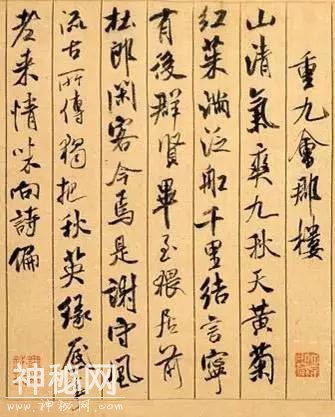 重九會郡樓
山清氣爽九秋天黃菊
紅茱滿泛船千里結言寧
有後群賢畢至猥居前
杜郎閑客今焉是謝守風
流古所傳獨把秋英緣底事
老來情味向詩偏
神秘网